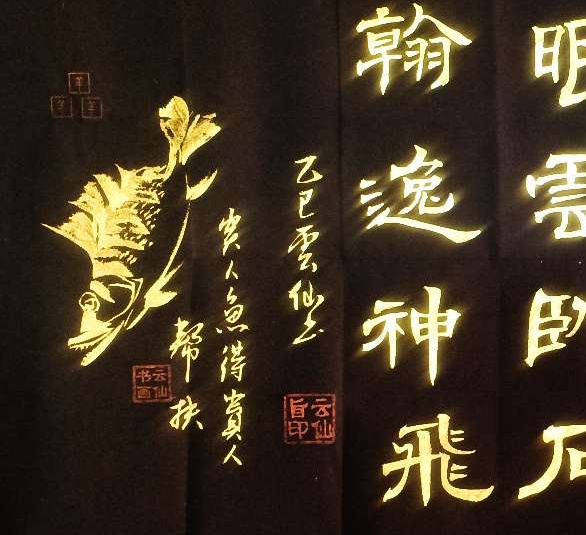 眠雲臥石
翰逸神飛
乙巳雲仙书
云仙
旨印
貴人魚得貴人
幫扶
云仙
书画
羊
羊
羊